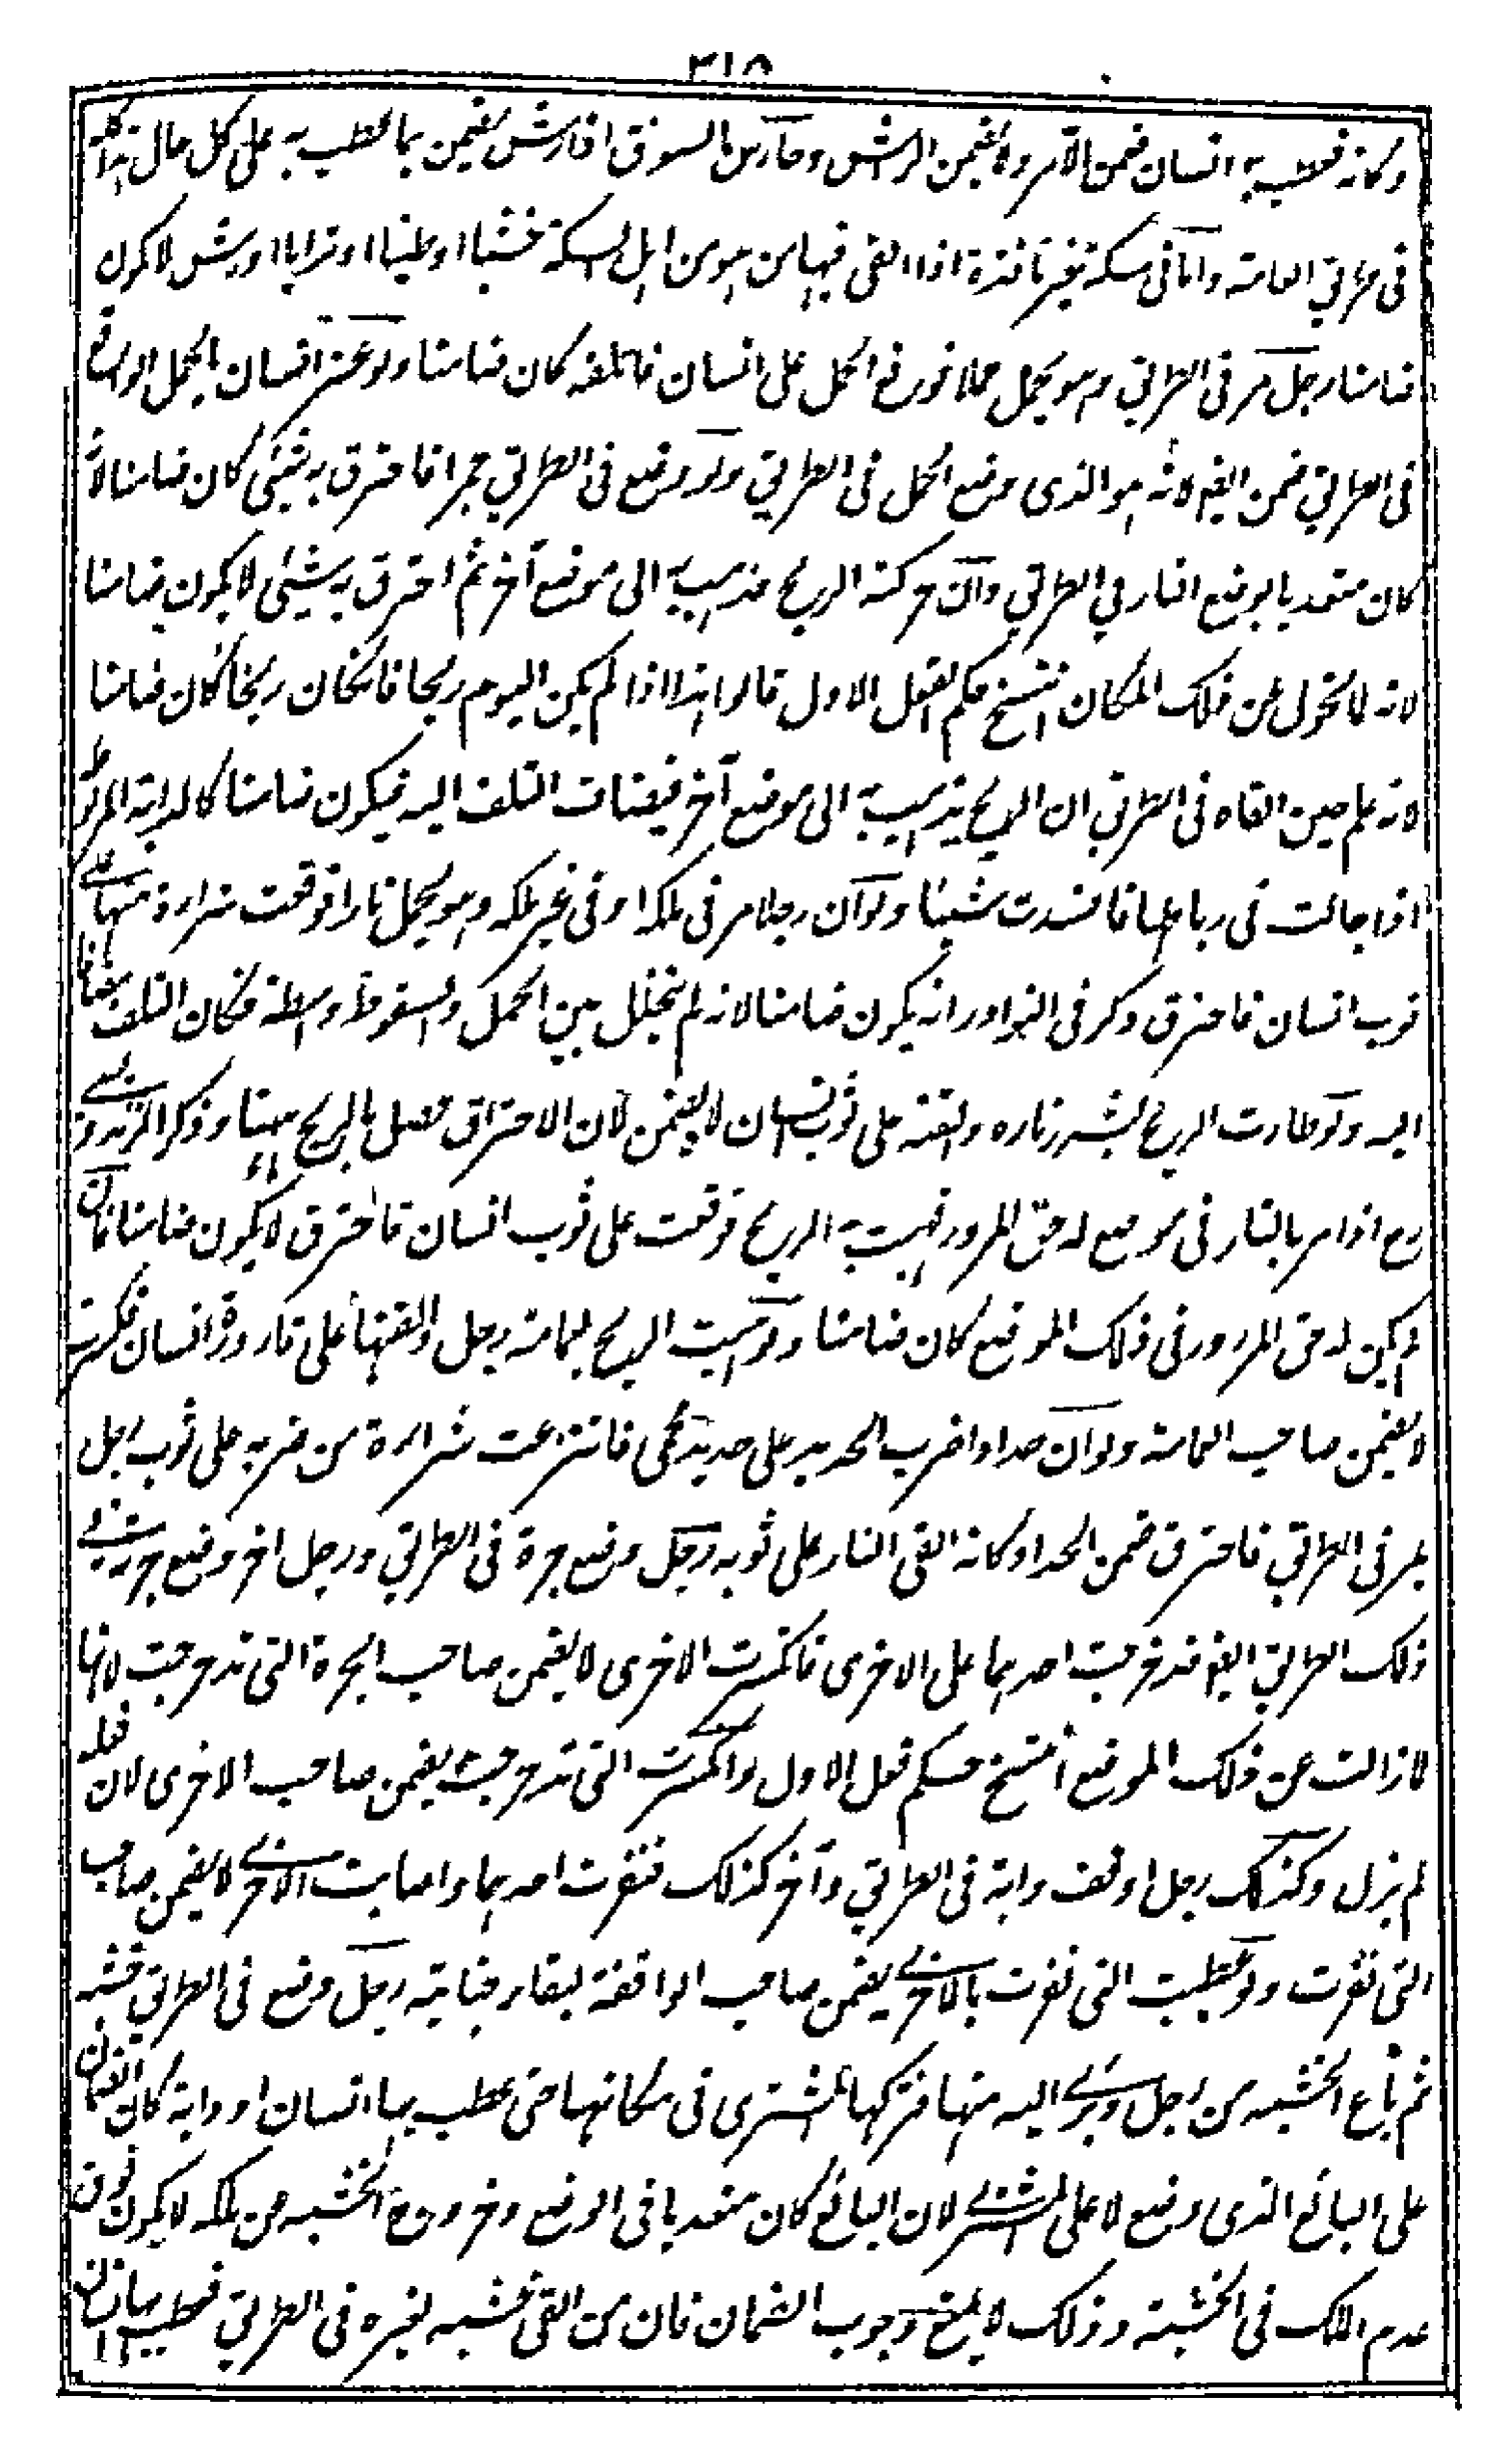 ٣١٨
دكانه فعطب به انسان ضمن الآمر ولا يضمن الراش وحارس السوق اذا رش يضمن بما عطب به على كل حال هذا كله
فى طريق العامة واما فى سكة غير نافذة اذا القى فيها من هو من اهل السكة خشبا او طينا او ترابا او رش لا يكون
ضامنا رجل مر فى الطريق وهو يحمل حملا فوقع الحمل على انسان فاتلفه كان ضامنا ولو عثر انسان بالحمل الواقع
فى الطريق ضمن ايضا لانه هو الذى وضع الحمل فى الطريق ولو وضع فى الطريق جمرا فاحترق به شيئ كان ضامنا لانه
كان متعديا بوضع النار فى الطريق وان حركته الريح فذهبت به الى موضع آخر ثم احترق به شيئ لا يكون ضامنا
لانه لما تحول عن ذلك المكان انتسخ حكم الفعل الاول قالوا هذا اذا لم يكن اليوم ريحا فان كان ريحا كان ضامنا
لانه علم حين القاه فى الطريق ان الريح يذهب به الى موضع آخر فيضاف التلف اليه فيكون ضامنا كالدابة المربوطة
اذا جالت فى رباطها فافسدت شيئا ولو ان رجلا مر فى ملكه او فى غير ملكه وهو يحمل نارا فوقعت شرارة منها على
ثوب انسان فاحترق ذكر فى النوادر انه يكون ضامنا لانه لم يتخلل بين الحمل والسقوط واسطة فكان التلف مضافا
اليه ولو طارت الريح بشرر ناره والقته على ثوب انسان لا يضمن لان الاحتراق حصل بالريح هبنا وذكر
اذا مر بالنار فى موضع له حق المرور فهبت به الريح فوقعت على ثوب انسان فاحترق لا يكون ضامنا فان
لم يكن له حق المرور فى ذلك الموضع كان ضامنا ولو هبت الريح بعمامة رجل والقتها على قارورة انسان فكسرت
لا يضمن صاحب العمامة ولو ان حدادا ضرب الحديد على حديد محمى فانتزعت شرارة من ضربه على ثوب رجل
يمر فى الطريق فاحترق ضمن الحداد كانه القى النار على ثوبه رجل وضع جرة فى الطريق ورجل آخر وضع جرة فى
ذلك الطريق ايضا فتدحرجت احدهما على الاخرى فانكسرت الاخرى لا يضمن صاحب الجرة التى تدحرجت لانها
لما زالت عن ذلك الموضع انتسخ حكم فعل الاول ولو انكسرت التى تدحرجت يضمن صاحب الاخرى لان فعله
لم يزل وكذلك رجل اوقف دابة فى الطريق وآخر كذلك فنفرت احدهما واصابت الاخرى لا يضمن صاحب
التى نفرت ولو عطبت التى نفرت بالاخرى يضمن صاحب الواقفة لبقاء جنايته رجل وضع فى الطريق خشبة
ثم باع الخشبة من رجل وبرئ اليه منها فتركها المشترى فى مكانها حتى عطب بها انسان او دابة كان الضمان
على البائع الذى وضع لا على المشترى لان البائع كان متعديا فى الوضع وخروج الخشبة من ملكه لا يكون فوق
عدم الملك فى الخشبة وذلك لا يمنع وجوب الضمان فان من القى خشبة لغيره فى الطريق فعطب بها انسان